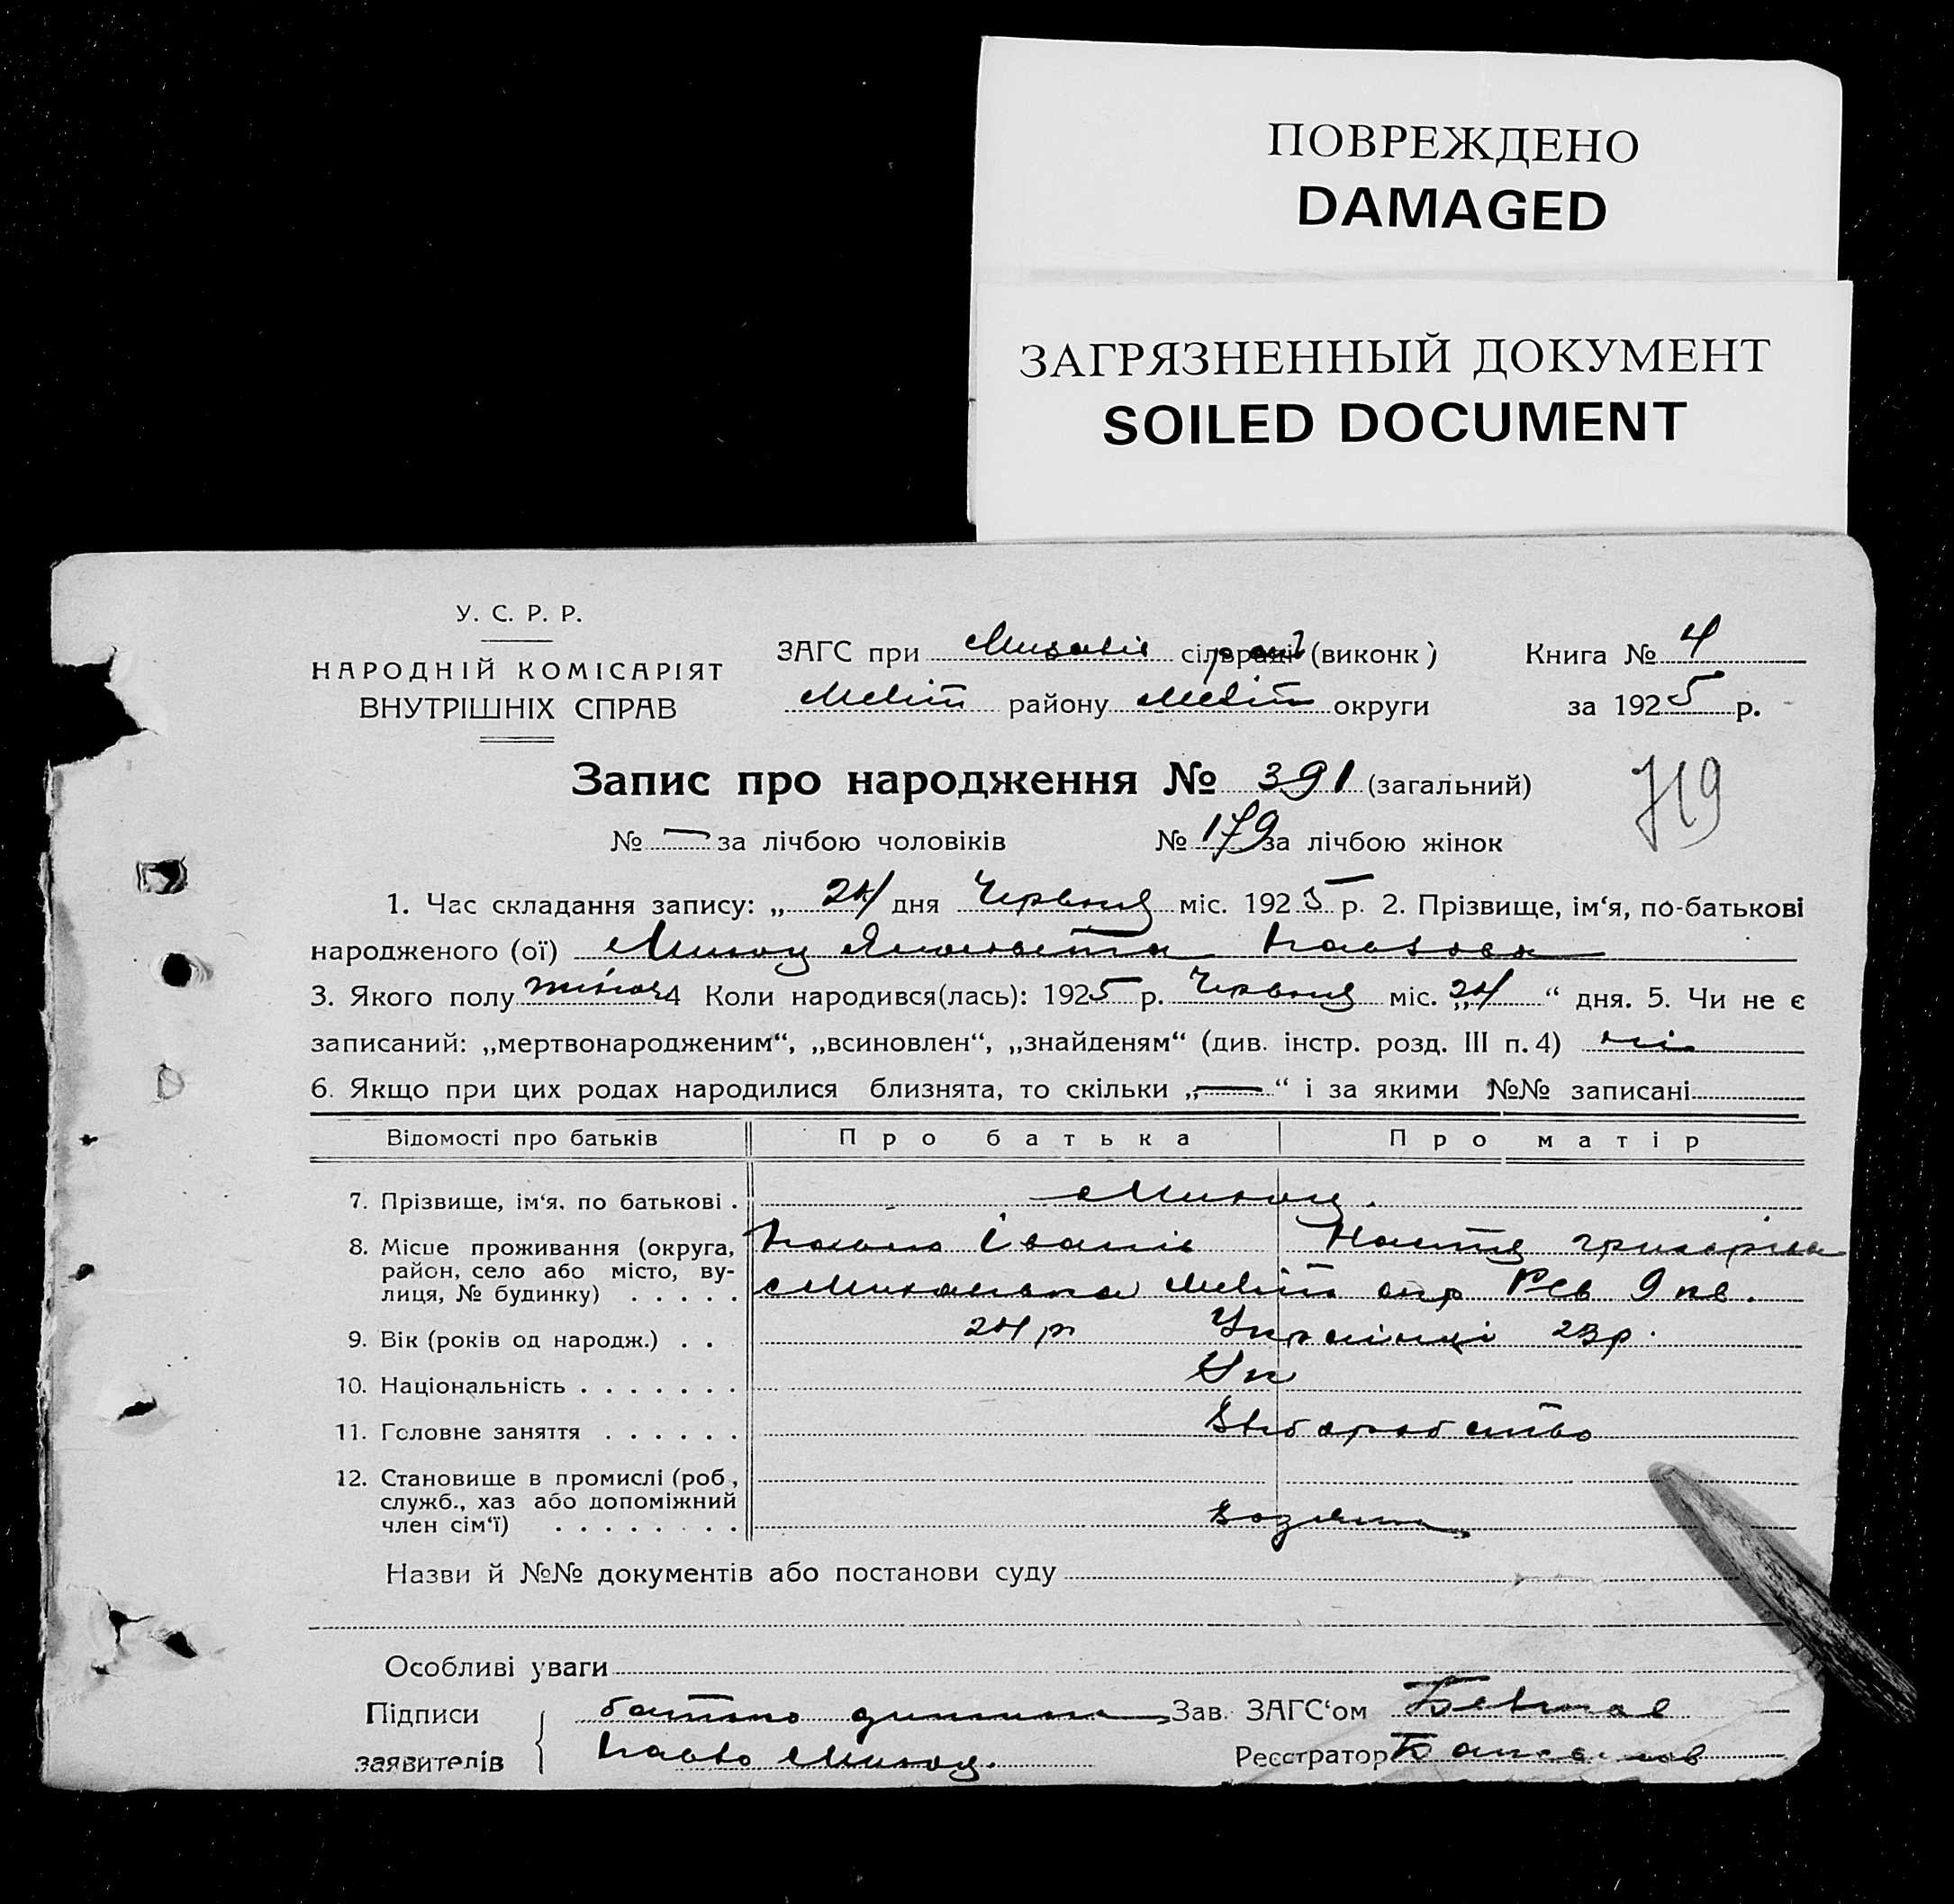 ПОВРЕЖДЕНО
DAMAGED
ЗАГРЯЗНЕННЫЙ ДОКУМЕНТ
SOILED DOCUMENT
У. С. Р. Р.
НАРОДНІЙ КОМІСАРІЯТ
ВНУТРІШНІХ СПРАВ
ЗАГС при сільраді (виконк)
Меліт району Меліт округи
Книга № 4
за 1925 р.
Запис про народження № 391 (загальний)
719
№ — за лічбою чоловіків № 179 за лічбою жінок
1. Час складання запису: „ 24 дня Червня міс. 1925 р. 2. Прізвище, ім‘я, по-батькові
народженого (ої) Павлова
3. Якого полу жіноч 4 Коли народився(лась): 1925 р. Червня міс. „24 “ дня. 5. Чи не є
записаний: „мертвонародженим“, „всиновлен“, „знайденям“ (див. інстр. розд. III п. 4) ні
6. Якщо при цих родах народилися близнята, то скільки „—“ і за якими №№ записані
Відомості про батьків Про батька Про матір
7. Прізвище, ім‘я, по батькові .
8. Місце проживання (округа, район, село або місто, вулиця, № будинку) . . . . .
Павло Іванів Настя Григорівна
Михайлівка Меліт окр 9 кв.
9. Вік (років од народж.) . . 24 р Українці 23 р.
10. Національність . . . . . . . Ук
11. Головне заняття . . . . . . Хліборобство
12. Становище в промислі (роб, служб., хаз або допоміжний член сім‘ї) . . . . . . . . Хозяїни
Назви й №№ документів або постанови суду
Особливі уваги
Підписи заявителів
батько дитини
Павло
Зав. ЗАГС‘ом
Реєстратор